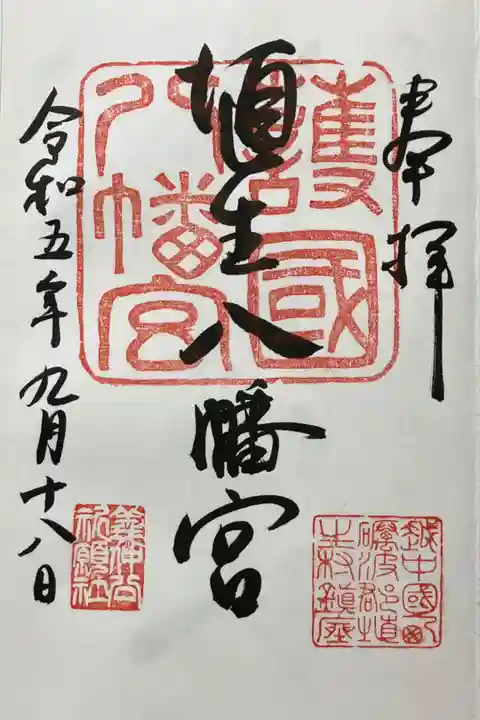 奉拝
護國
八幡宮
埴生八幡宮
越中國
礪波郡埴
生村鎮座
令和五年九月十八日
祈願社